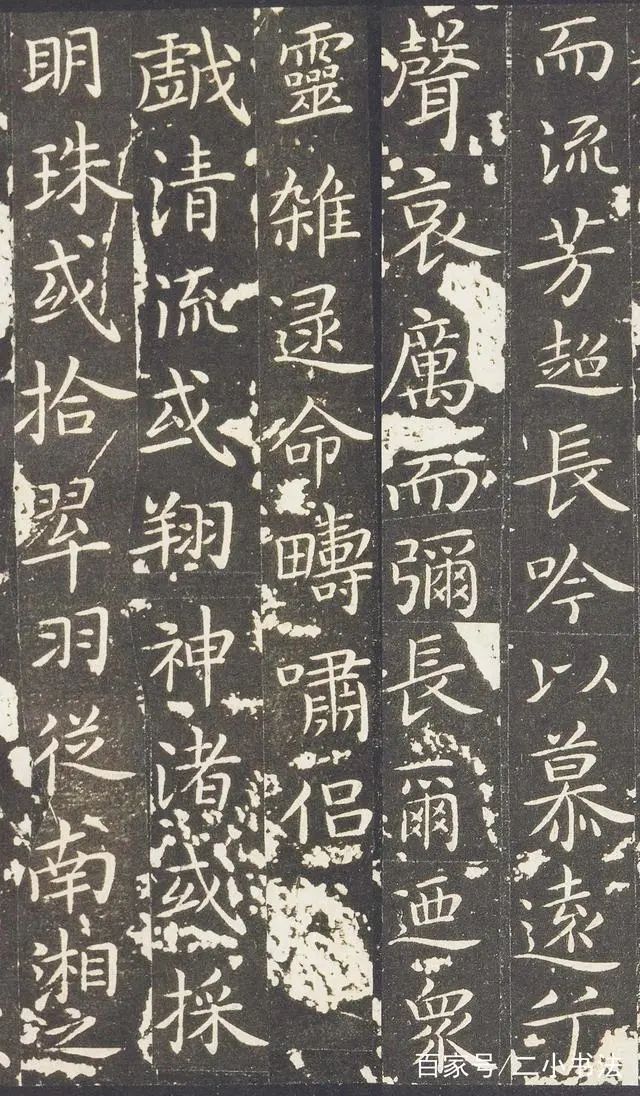 而流芳超長吟以慕遠兮
聲哀厲而彌長爾迺眾
靈雜遝命疇嘯侶
戲清流或翔神渚或採
明珠或拾翠羽從南湘之
百家号/二小书法